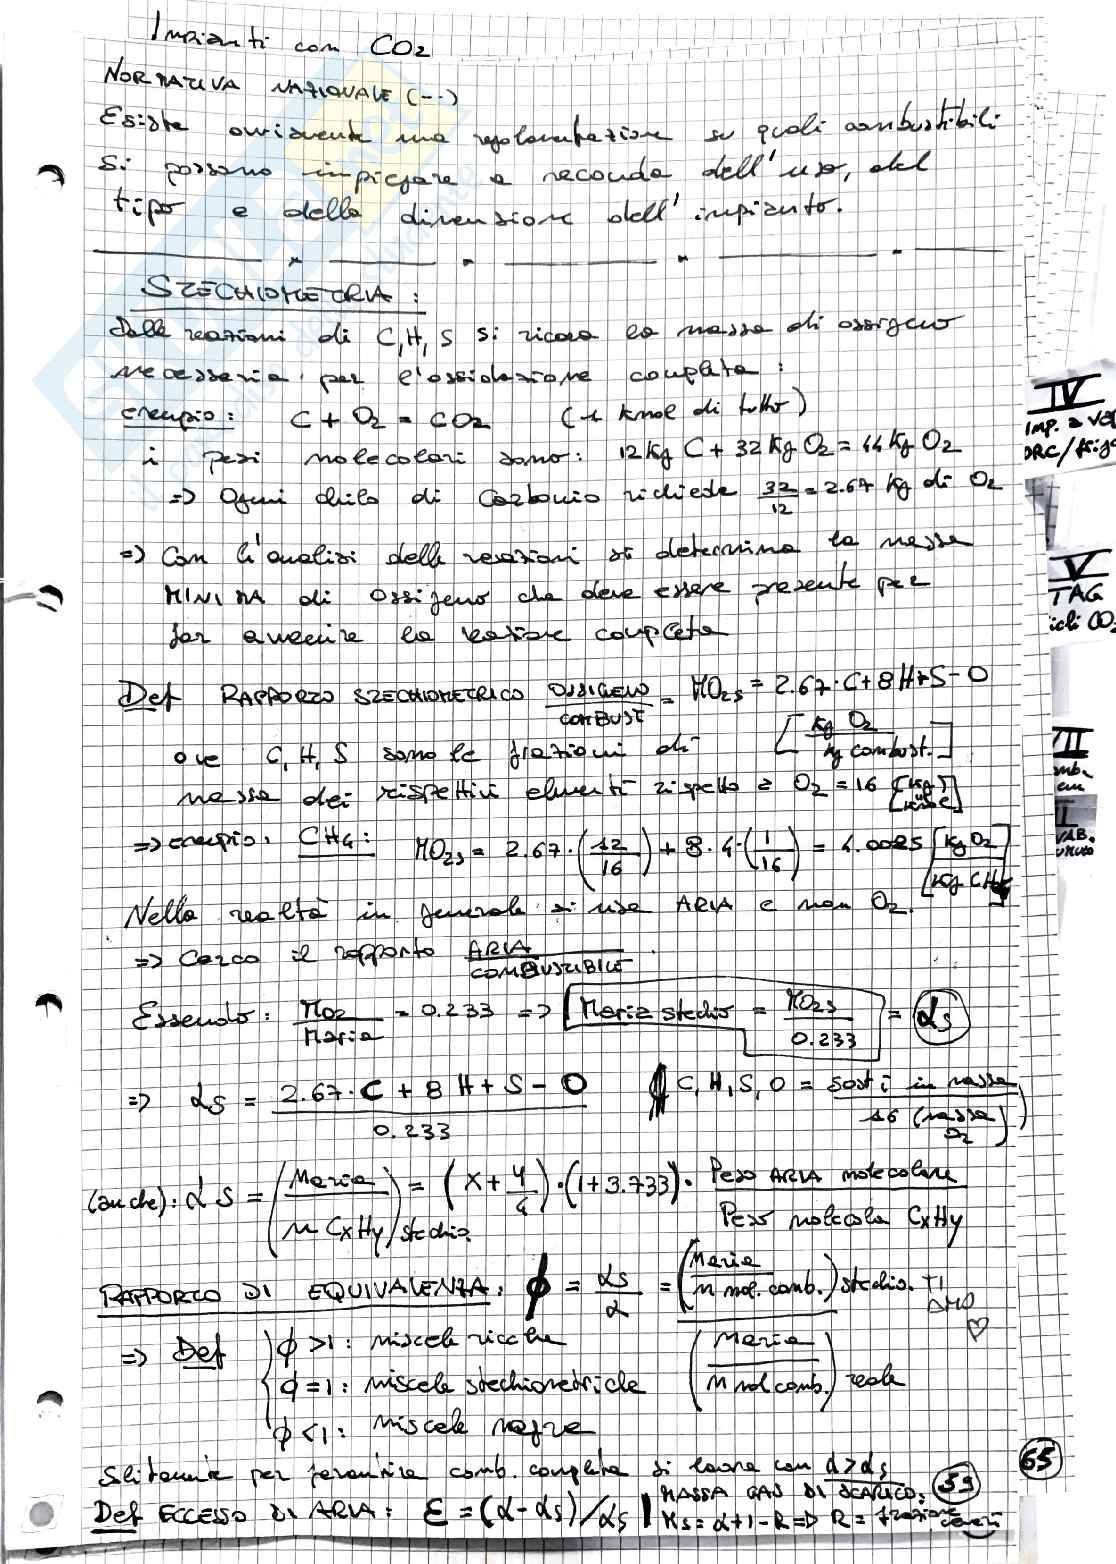 Impianti con CO2
NORMATIVA NAZIONALE (--)
Esiste ovviamente una regolamentazione su quali combustibili
si possono impiegare a seconda dell'uso, del
tipo e della dimensione dell'impianto.
STECHIOMETRIA:
Dalle reazioni di C, H, S si ricava la massa di ossigeno
necessaria per l'ossidazione completa:
esempio: C + O2 = CO2 (1 Kmol di tutto)
i pesi molecolari sono: 12 Kg C + 32 Kg O2 = 44 Kg O2
=> Ogni chilo di Carbonio richiede 32/12 = 2.67 Kg di O2
=> Con l'analisi delle reazioni si determina la massa
MINIMA di ossigeno che deve essere presente per
far avvenire la reazione completa
Def RAPPORTO STECHIOMETRICO OSSIGENO/COMBUST = MO2s = 2.67·C+8H+S-O
[Kg O2/Kg combust.]
ove C, H, S sono le frazioni di
massa dei rispettivi elementi rispetto a O2 = 16 [Kg/Kmole]
=> esempio: CH4: MO2s = 2.67·(12/16) + 8·4·(1/16) = 4.0025 [Kg O2]/[Kg CH4]
Nella realtà in generale si usa ARIA e non O2.
=> Cerco il rapporto ARIA/COMBUSTIBILE
Essendo: MO2/Maria = 0.233 => Maria stechio = MO2s/0.233 = αs
=> αs = 2.67·C + 8H + S - O/0.233 C, H, S, O = sost i in massa/16 (massa O2)
(anche): αs = (Maria/m CxHy) stechio. = (x + y/4)·(1+3.733)· Peso ARIA molecolare/Peso molecola CxHy
RAPPORTO DI EQUIVALENZA: ϕ = αs/α = (Maria/m mol. comb.) stechio./(Maria/m mol comb.) reale
TI AMO ♡
=> Def ϕ>1: miscele ricche
ϕ=1: miscele stechiometriche
ϕ<1: miscele magre
Solitamente per garantire comb. completa si lavora con α>αs
Def ECCESSO DI ARIA: ε = (α-αs)/αs | MASSA GAS DI SCARICO:
Ms = α+1-R => R = frazione ceneri
59
65
IV
IMP. a
ORC/
V
TAG
CO2
VII